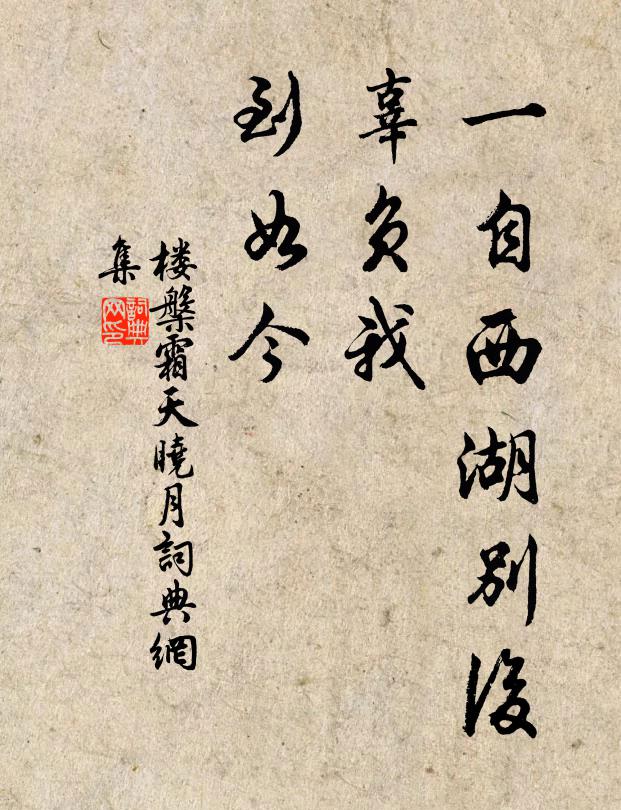 一自西湖別後
辜負我
到如今
楼槃霜天曉月詞典網
集
詞典網印